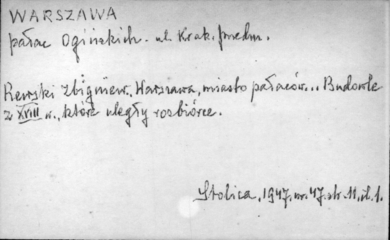 WARSZAWA
pałac Ogińskich - ul. Krak. Przedm.
Rewski Zbigniew. Warszawa, miasto pałaców... Budowle
z XVIII w., które uległy rozbiórce.
Stolica, 1947. nr. 47. str. 11. il. 1.